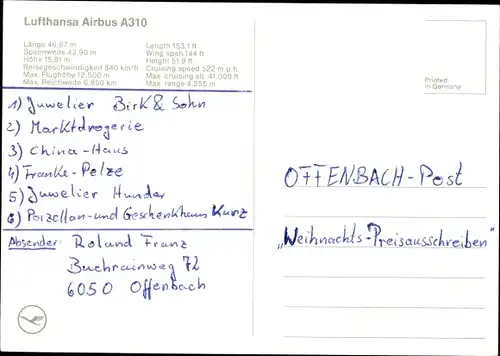 Lufthansa Airbus A310
Länge 46,67 m Length 153.1 ft
Spannweite 43,90 m Wing span 144 ft
Höhe 15,81 m Height 51.9 ft
Reisegeschwindigkeit 840 km/h Cruising speed 522 m.p.h.
Max. Flughöhe 12.500 m Max. cruising alt. 41.000 ft
Max. Reichweite 6.850 km Max. range 4.255 m
Printed
in Germany
1) Juwelier Birk & Sohn
2) Marktdrogerie
3) China-Haus
4) Franke-Pelze
5) Juwelier Hunder
6) Porzellan- und Geschenkhaus Kurz
Absender: Roland Franz
Buchrainweg 72
6050 Offenbach
OFFENBACH-Post
„Weihnachts-Preisausschreiben"